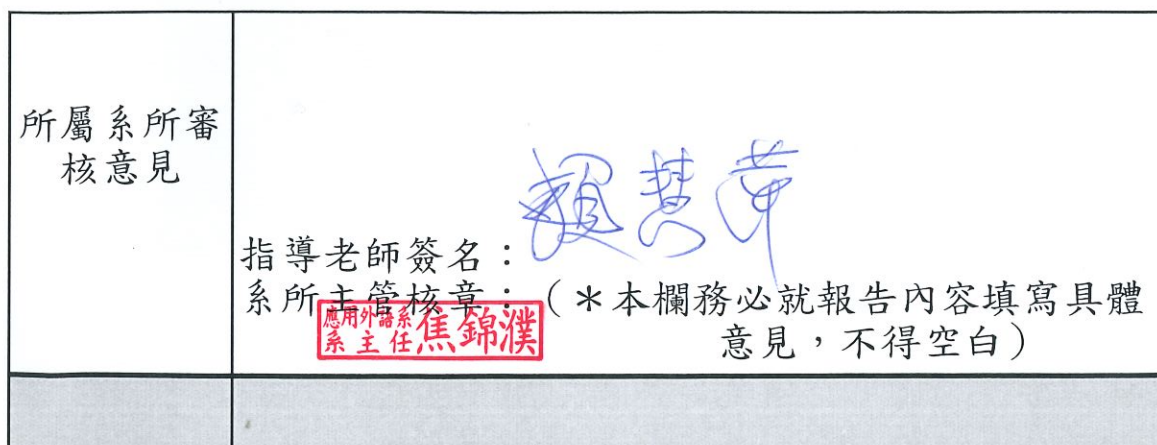 所屬系所審
核意見
賴慧萍
指導老師簽名：
系所主管核章：（＊本欄務必就報告內容填寫具體
意見，不得空白）
應用外語系
系主任 焦錦濮